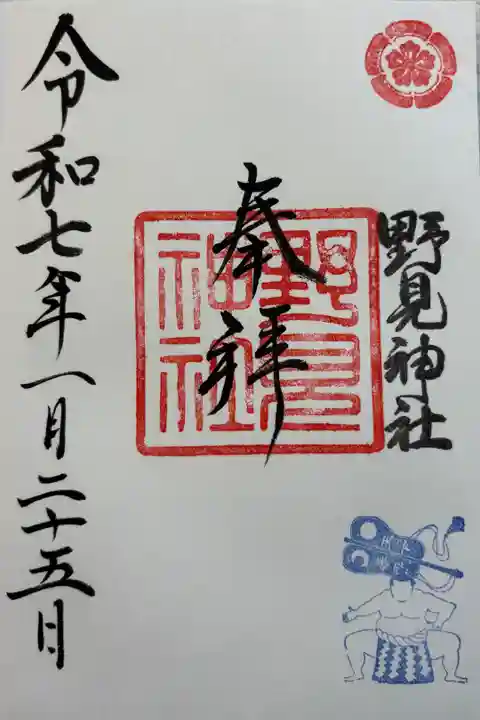 野見神社
奉拝
野見
神社
令和七年一月二十五日